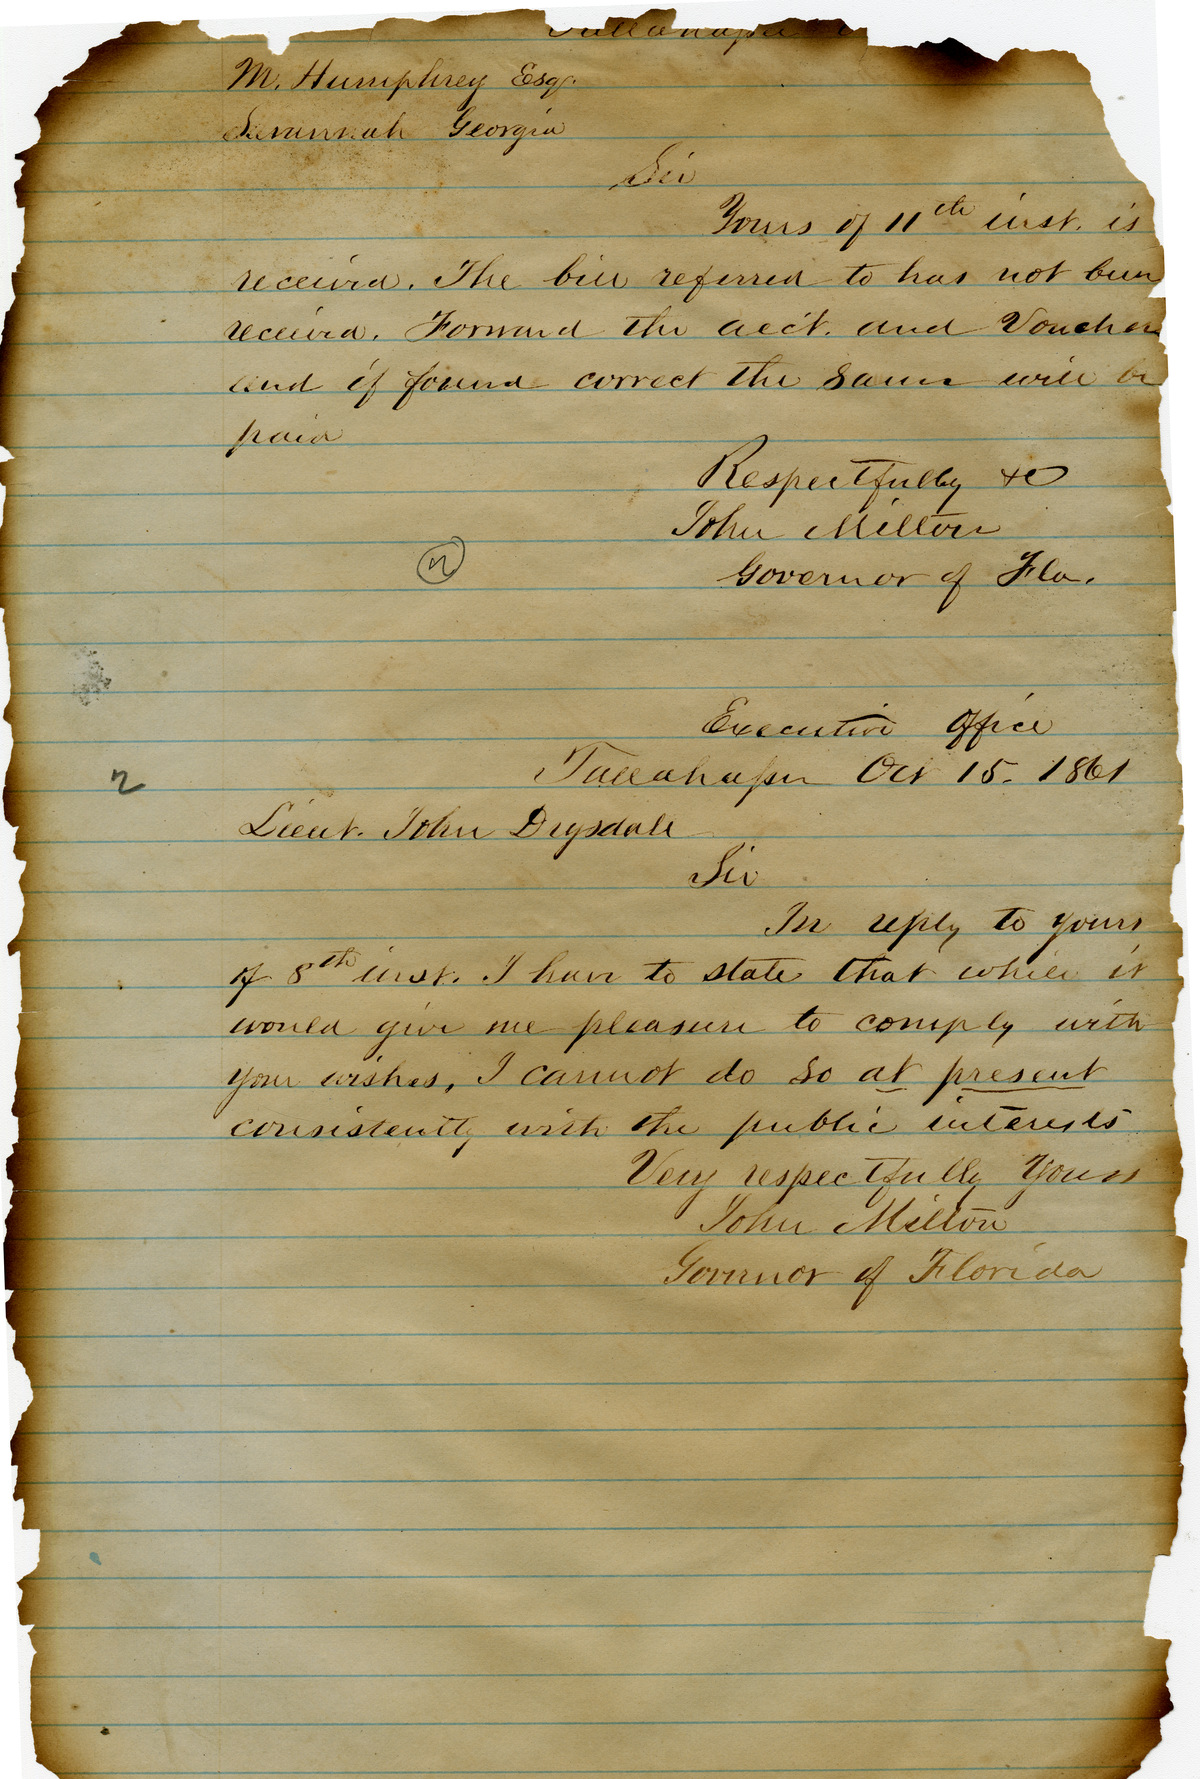 Tallahassee
M. Humphrey Esq.
Savannah Georgia
Sir
Yours of 11th inst. is
received. The bill referred to has not been
received. Forward the acc't. and Voucher
and if found correct the same will be
paid
Respectfully &c
John Milton
Governor of Fla.
2
Executive Office
Tallahassee Oct 15. 1861
2
Lieut. John Drysdale
Sir
In reply to yours
of 8th inst. I have to state that while it
would give me pleasure to comply with
your wishes, I cannot do so at present
consistently with the public interests
Very respectfully Yours
John Milton
Governor of Florida